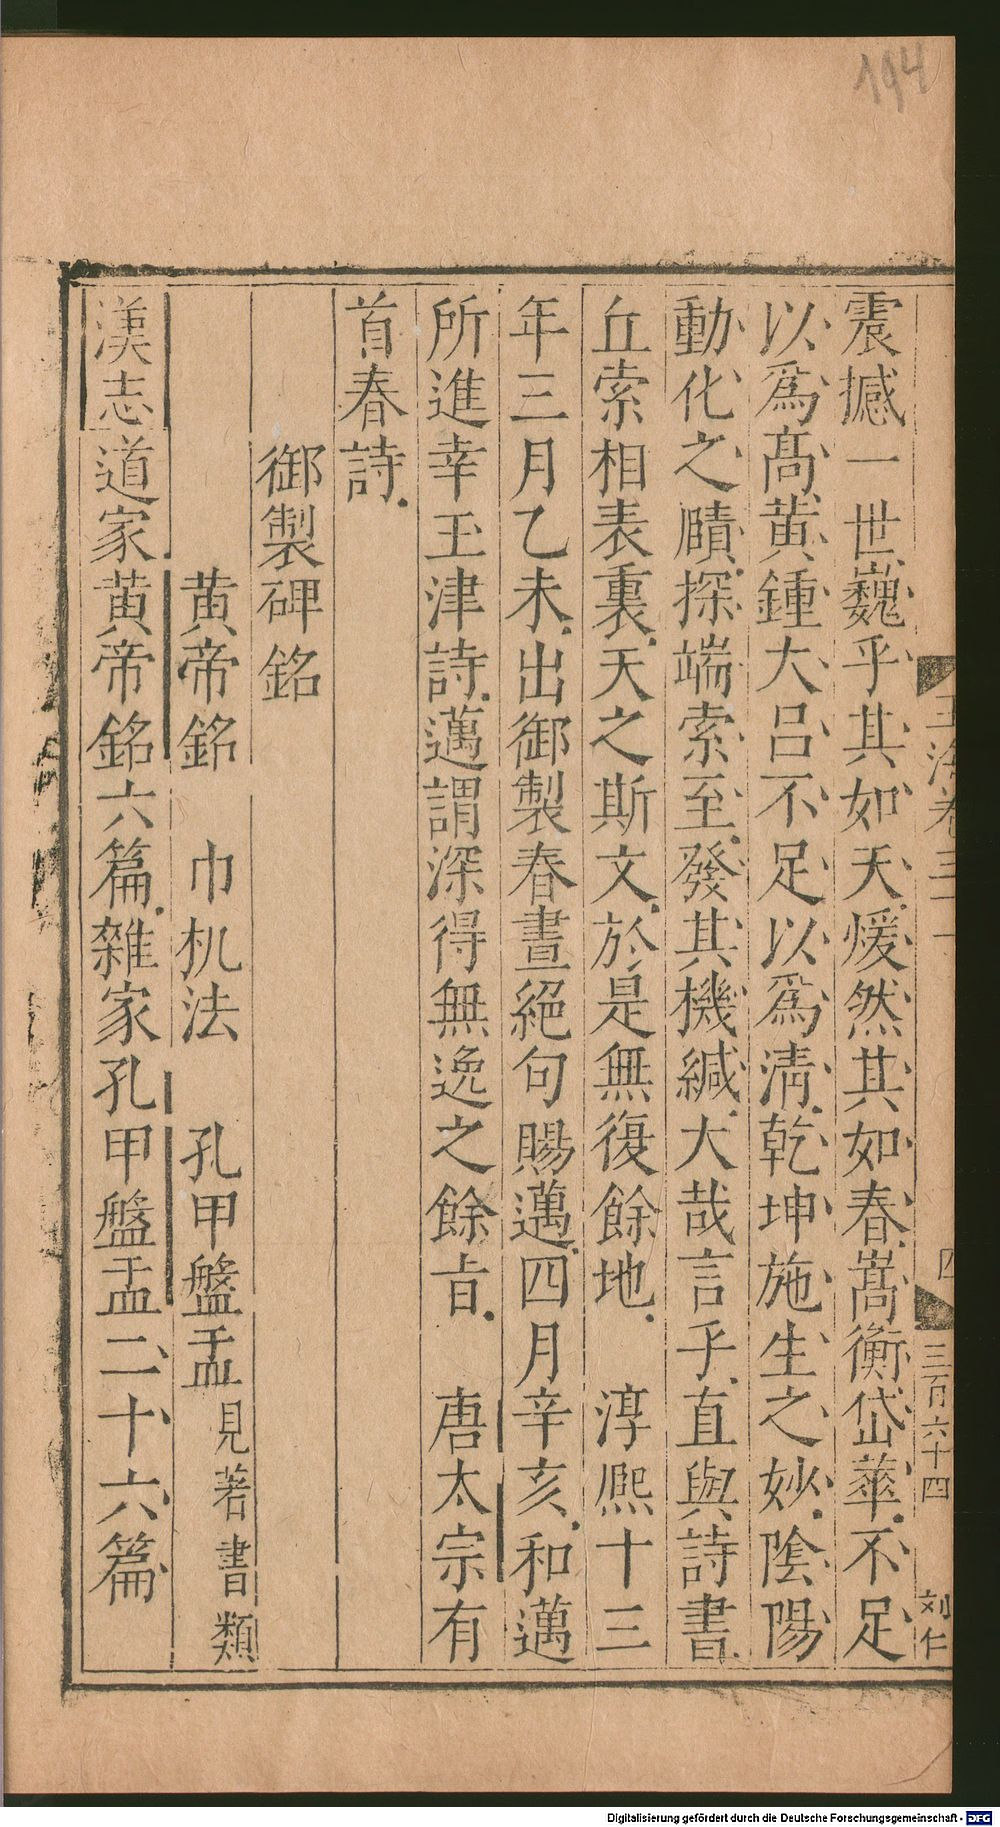 194
震撼一世巍乎其如天煖然其如春嵩衡岱華不足
以爲髙黄鍾大吕不足以爲清乾坤施生之妙陰陽
動化之賾探端索至發其機緘大哉言乎直與詩書
丘索相表裏天之斯文於是無復餘地　淳熈十三
年三月乙未出御製春晝絕句賜邁四月辛亥和邁
所進幸玉津詩邁謂深得無逸之餘㫖　唐太宗有
首春詩
御製碑銘
黄帝銘　巾机法　孔甲盤盂見著書類
漢志道家黄帝銘六篇雜家孔甲盤盂二十六篇
玉海卷三十一　四　三百六十四　刘仁
Digitalisierung gefördert durch die Deutsche Forschungsgemeinschaft - DFG